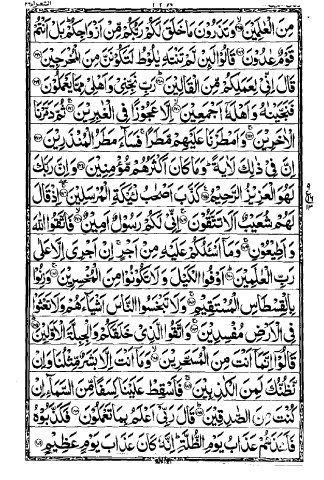 مِنَ الْعٰلَمِيْنَ ۝ وَتَذَرُوْنَ مَا خَلَقَ لَكُمْ رَبُّكُمْ مِّنْ اَزْوَاجِكُمْ بَلْ اَنْتُمْ
قَوْمٌ عٰدُوْنَ ۝ قَالُوْا لَئِنْ لَّمْ تَنْتَهِ يٰلُوْطُ لَتَكُوْنَنَّ مِنَ الْمُخْرَجِيْنَ ۝
قَالَ اِنِّيْ لِعَمَلِكُمْ مِّنَ الْقَالِيْنَ ۝ رَبِّ نَجِّنِيْ وَاَهْلِيْ مِمَّا يَعْمَلُوْنَ ۝
فَنَجَّيْنٰهُ وَاَهْلَهٗٓ اَجْمَعِيْنَ ۝ اِلَّا عَجُوْزًا فِي الْغٰبِرِيْنَ ۝ ثُمَّ دَمَّرْنَا
الْاٰخَرِيْنَ ۝ وَاَمْطَرْنَا عَلَيْهِمْ مَّطَرًا فَسَآءَ مَطَرُ الْمُنْذَرِيْنَ ۝
اِنَّ فِيْ ذٰلِكَ لَاٰيَةً وَمَا كَانَ اَكْثَرُهُمْ مُّؤْمِنِيْنَ ۝ وَاِنَّ رَبَّكَ
لَهُوَ الْعَزِيْزُ الرَّحِيْمُ ۝ كَذَّبَ اَصْحٰبُ لْـَٔيْكَةِ الْمُرْسَلِيْنَ ۝ اِذْ قَالَ
لَهُمْ شُعَيْبٌ اَلَا تَتَّقُوْنَ ۝ اِنِّيْ لَكُمْ رَسُوْلٌ اَمِيْنٌ ۝ فَاتَّقُوا اللّٰهَ
وَاَطِيْعُوْنِ ۝ وَمَآ اَسْـَٔلُكُمْ عَلَيْهِ مِنْ اَجْرٍ اِنْ اَجْرِيَ اِلَّا عَلٰى
رَبِّ الْعٰلَمِيْنَ ۝ اَوْفُوا الْكَيْلَ وَلَا تَكُوْنُوْا مِنَ الْمُخْسِرِيْنَ ۝ وَزِنُوْا
بِالْقِسْطَاسِ الْمُسْتَقِيْمِ ۝ وَلَا تَبْخَسُوا النَّاسَ اَشْيَآءَهُمْ وَلَا تَعْثَوْا
فِي الْاَرْضِ مُفْسِدِيْنَ ۝ وَاتَّقُوا الَّذِيْ خَلَقَكُمْ وَالْجِبِلَّةَ الْاَوَّلِيْنَ ۝
قَالُوْٓا اِنَّمَآ اَنْتَ مِنَ الْمُسَحَّرِيْنَ ۝ وَمَآ اَنْتَ اِلَّا بَشَرٌ مِّثْلُنَا وَاِنْ
نَّظُنُّكَ لَمِنَ الْكٰذِبِيْنَ ۝ فَاَسْقِطْ عَلَيْنَا كِسَفًا مِّنَ السَّمَآءِ اِنْ
كُنْتَ مِنَ الصّٰدِقِيْنَ ۝ قَالَ رَبِّيْٓ اَعْلَمُ بِمَا تَعْمَلُوْنَ ۝ فَكَذَّبُوْهُ
فَاَخَذَهُمْ عَذَابُ يَوْمِ الظُّلَّةِ اِنَّهٗ كَانَ عَذَابَ يَوْمٍ عَظِيْمٍ ۝